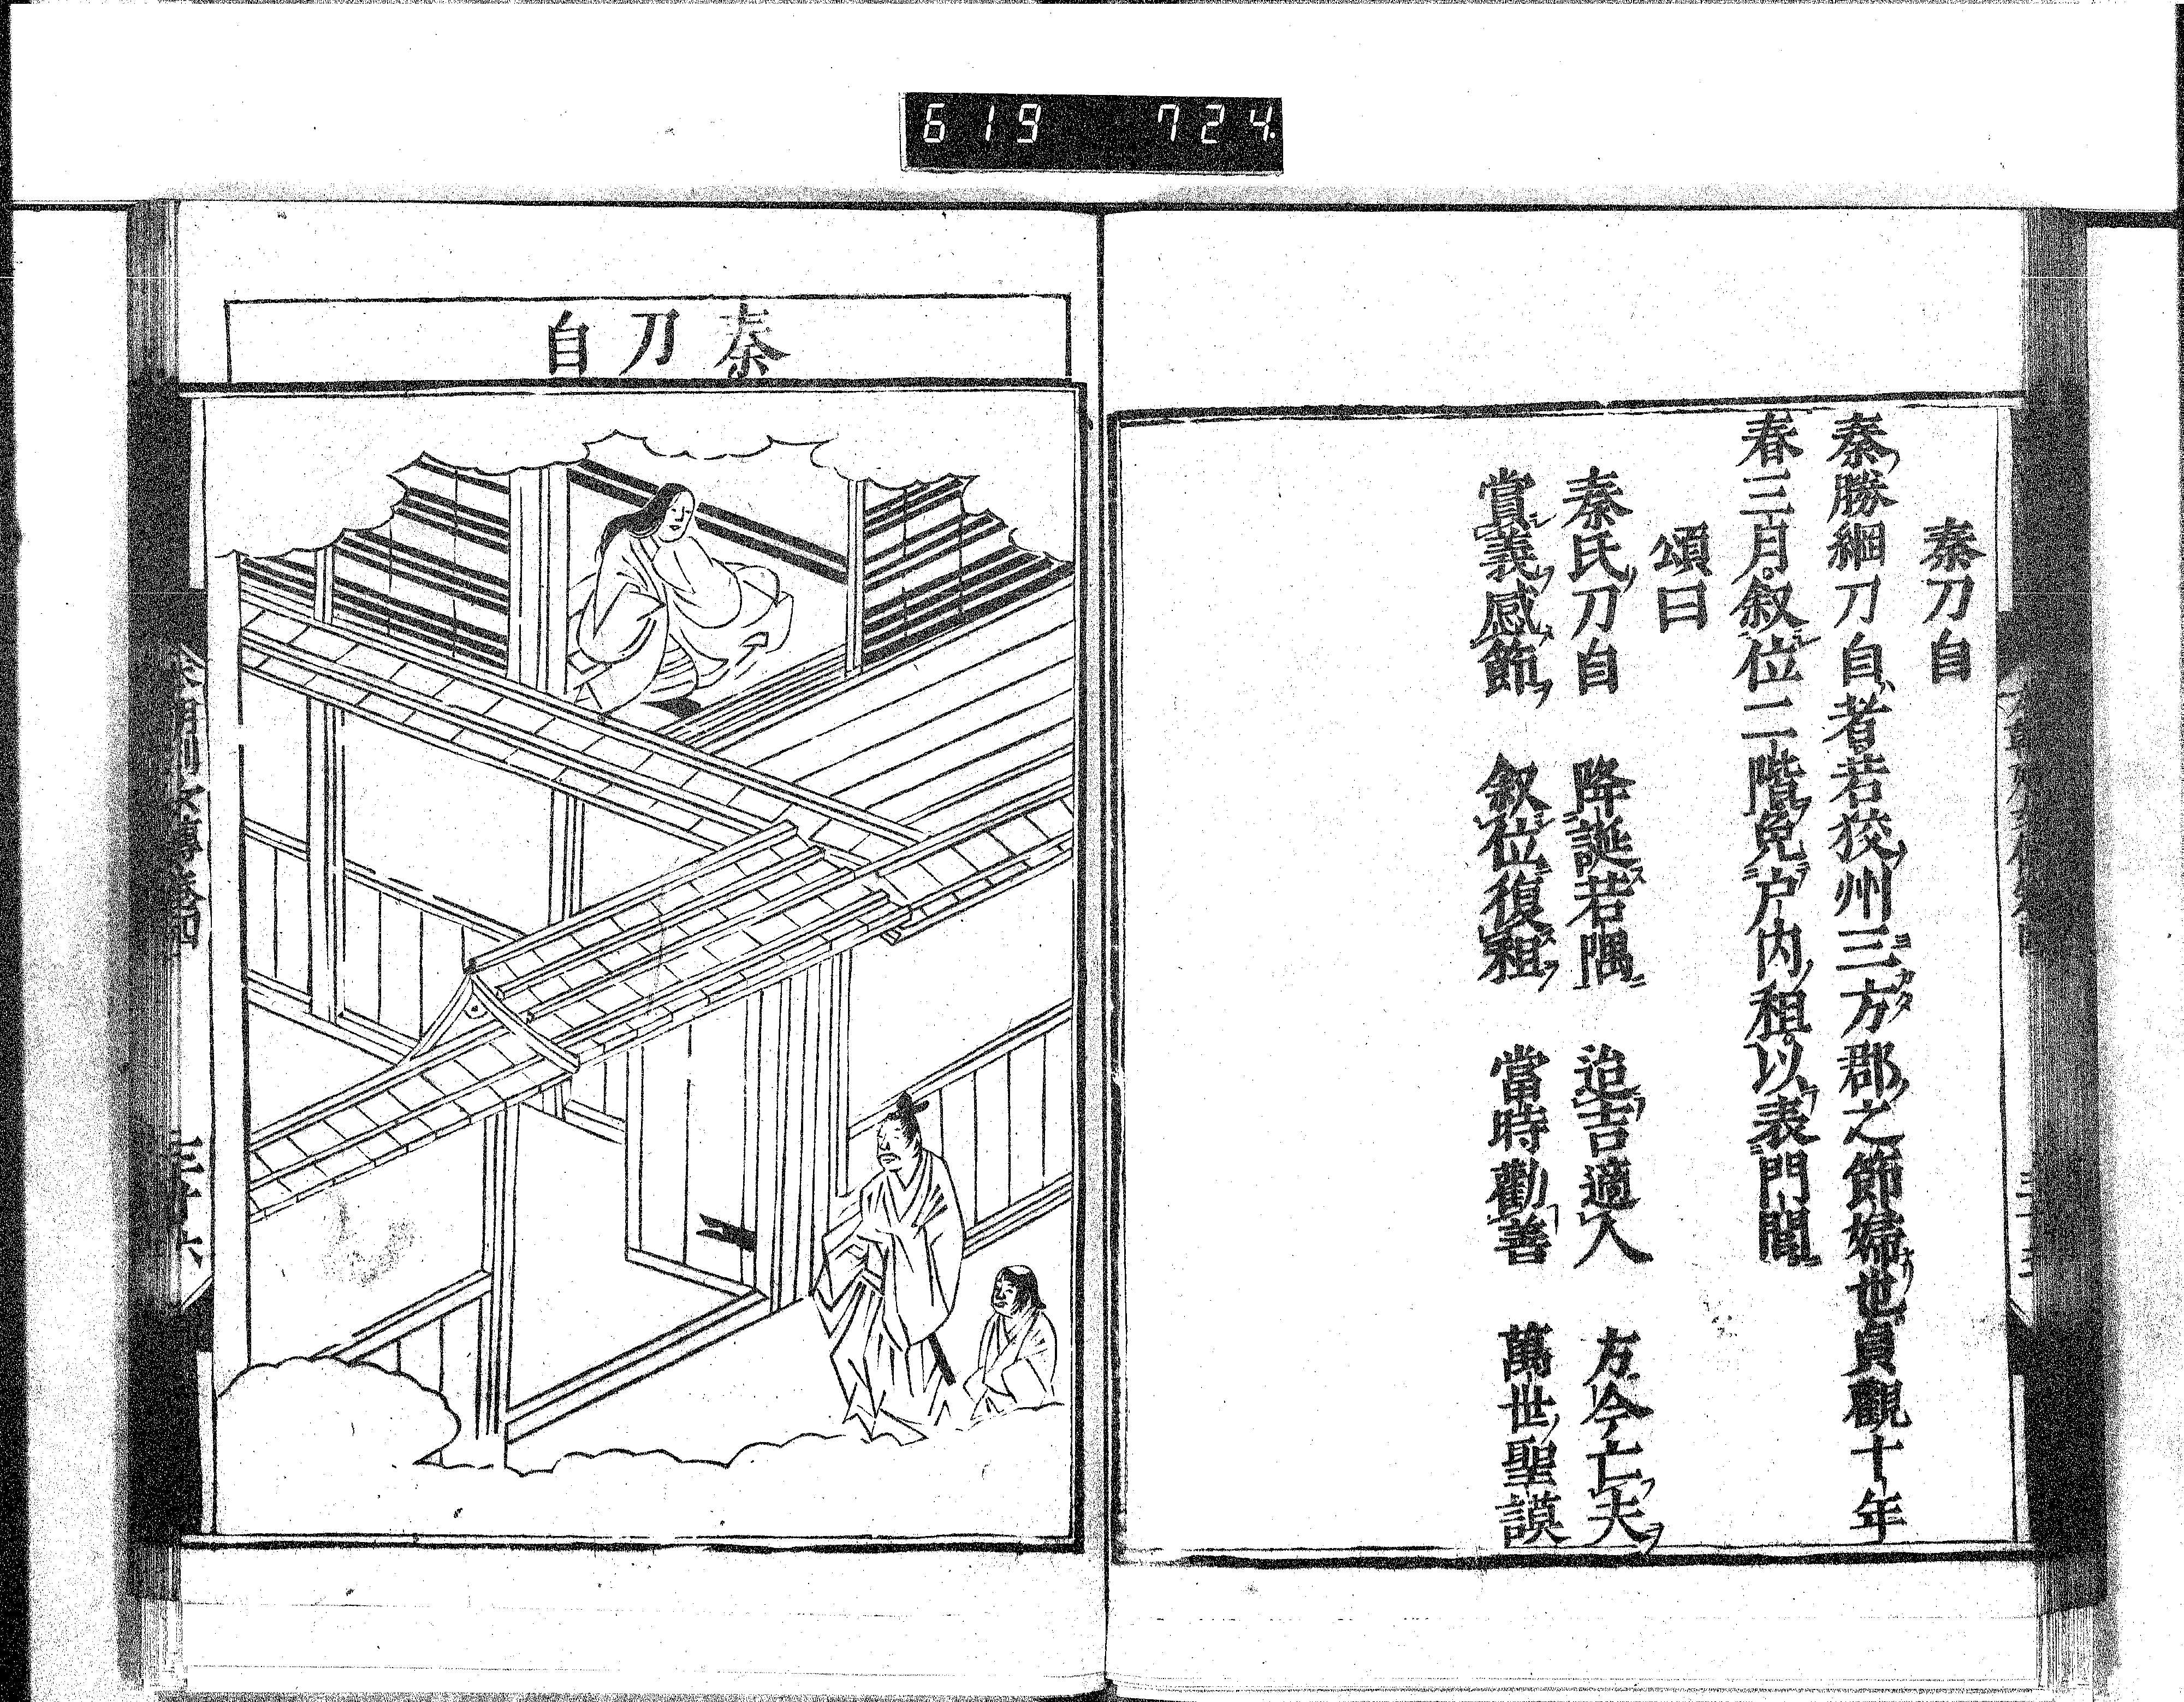 6 19 724.
秦刀自
秦勝細刀自者若狹州三方郡之節婦也貞觀十年
春三月叙位二階免戸内租以表門閭
頌曰
秦氏刀自 降誕若隅 迨吉適人 方今亡夫
賞義感節 叙位復租 當時勸善 萬世聖謨
秦刀自